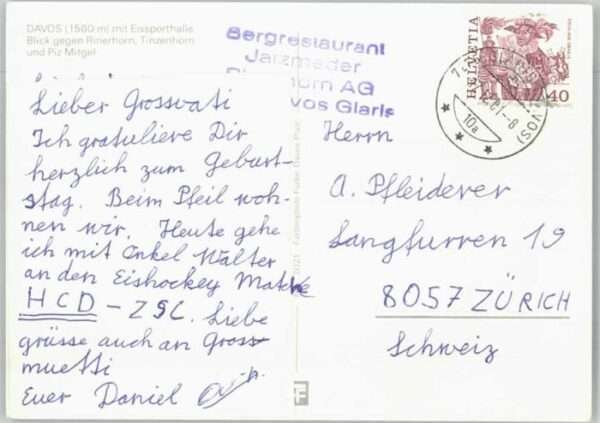 DAVOS (1560 m) mit Eissporthalle
Blick gegen Rinerhorn, Tinzenhorn
und Piz Mitgel
Bergrestaurant
Jatzmeder
AG
Glaris
HELVETIA
40
10a
Lieber Grossvati
Ich gratuliere Dir
herzlich zum Geburt-
stag. Beim Pfeil woh-
nen wir. Heute gehe
ich mit Onkel Walter
an den Eishockey Match
HCD - ZSC. Liebe
grüsse auch an Gross
muetti
Euer Daniel
Herrn
A. Pfleiderer
Langfurren 19
8057 ZÜRICH
Schweiz